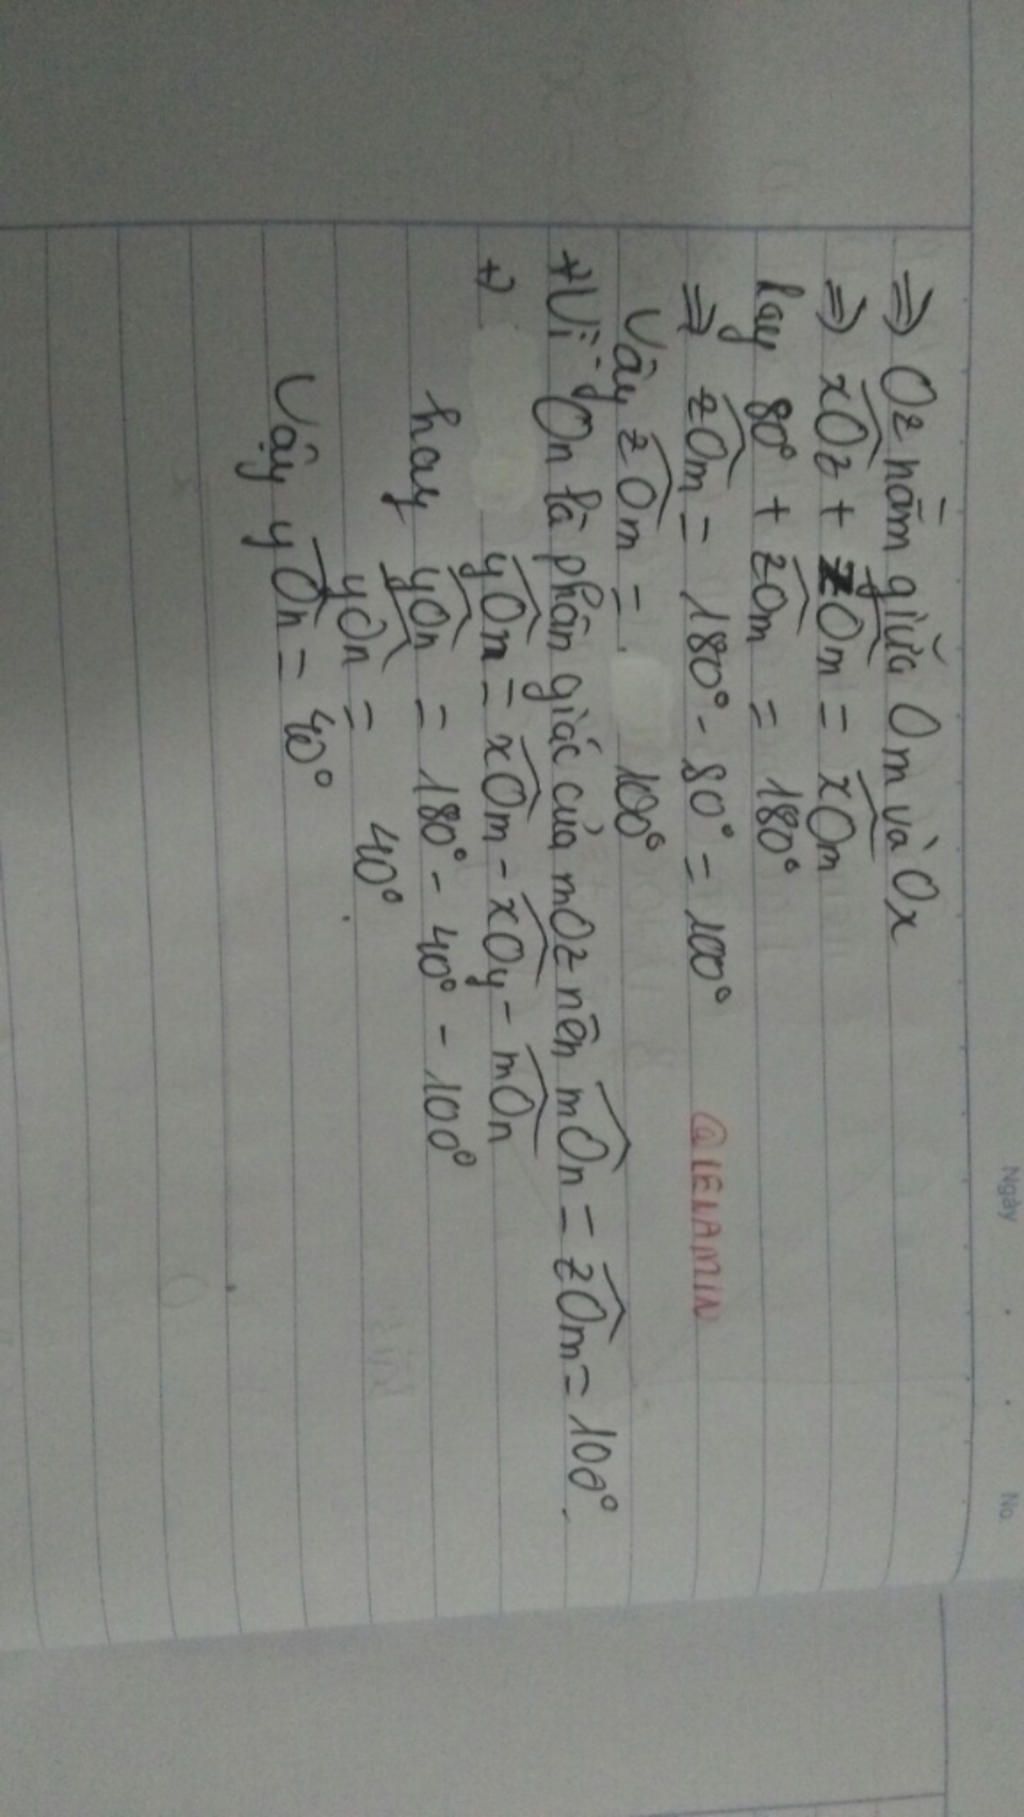 Ngày No.
⇒ Oz nằm giữa Om và Ox
⇒ xOz + zOm = xOm
hay 80° + zOm = 180°
⇒ zOm = 180° - 80° = 100°
@IELAMIN
Vậy zOm = 100°
+ Vì On là phân giác của mOz nên mOn = zOm = 100°.
+) yOn = xOm - xOy - mOn
hay yOn = 180° - 40° - 100°
yOn = 40°
Vậy yOn = 40°